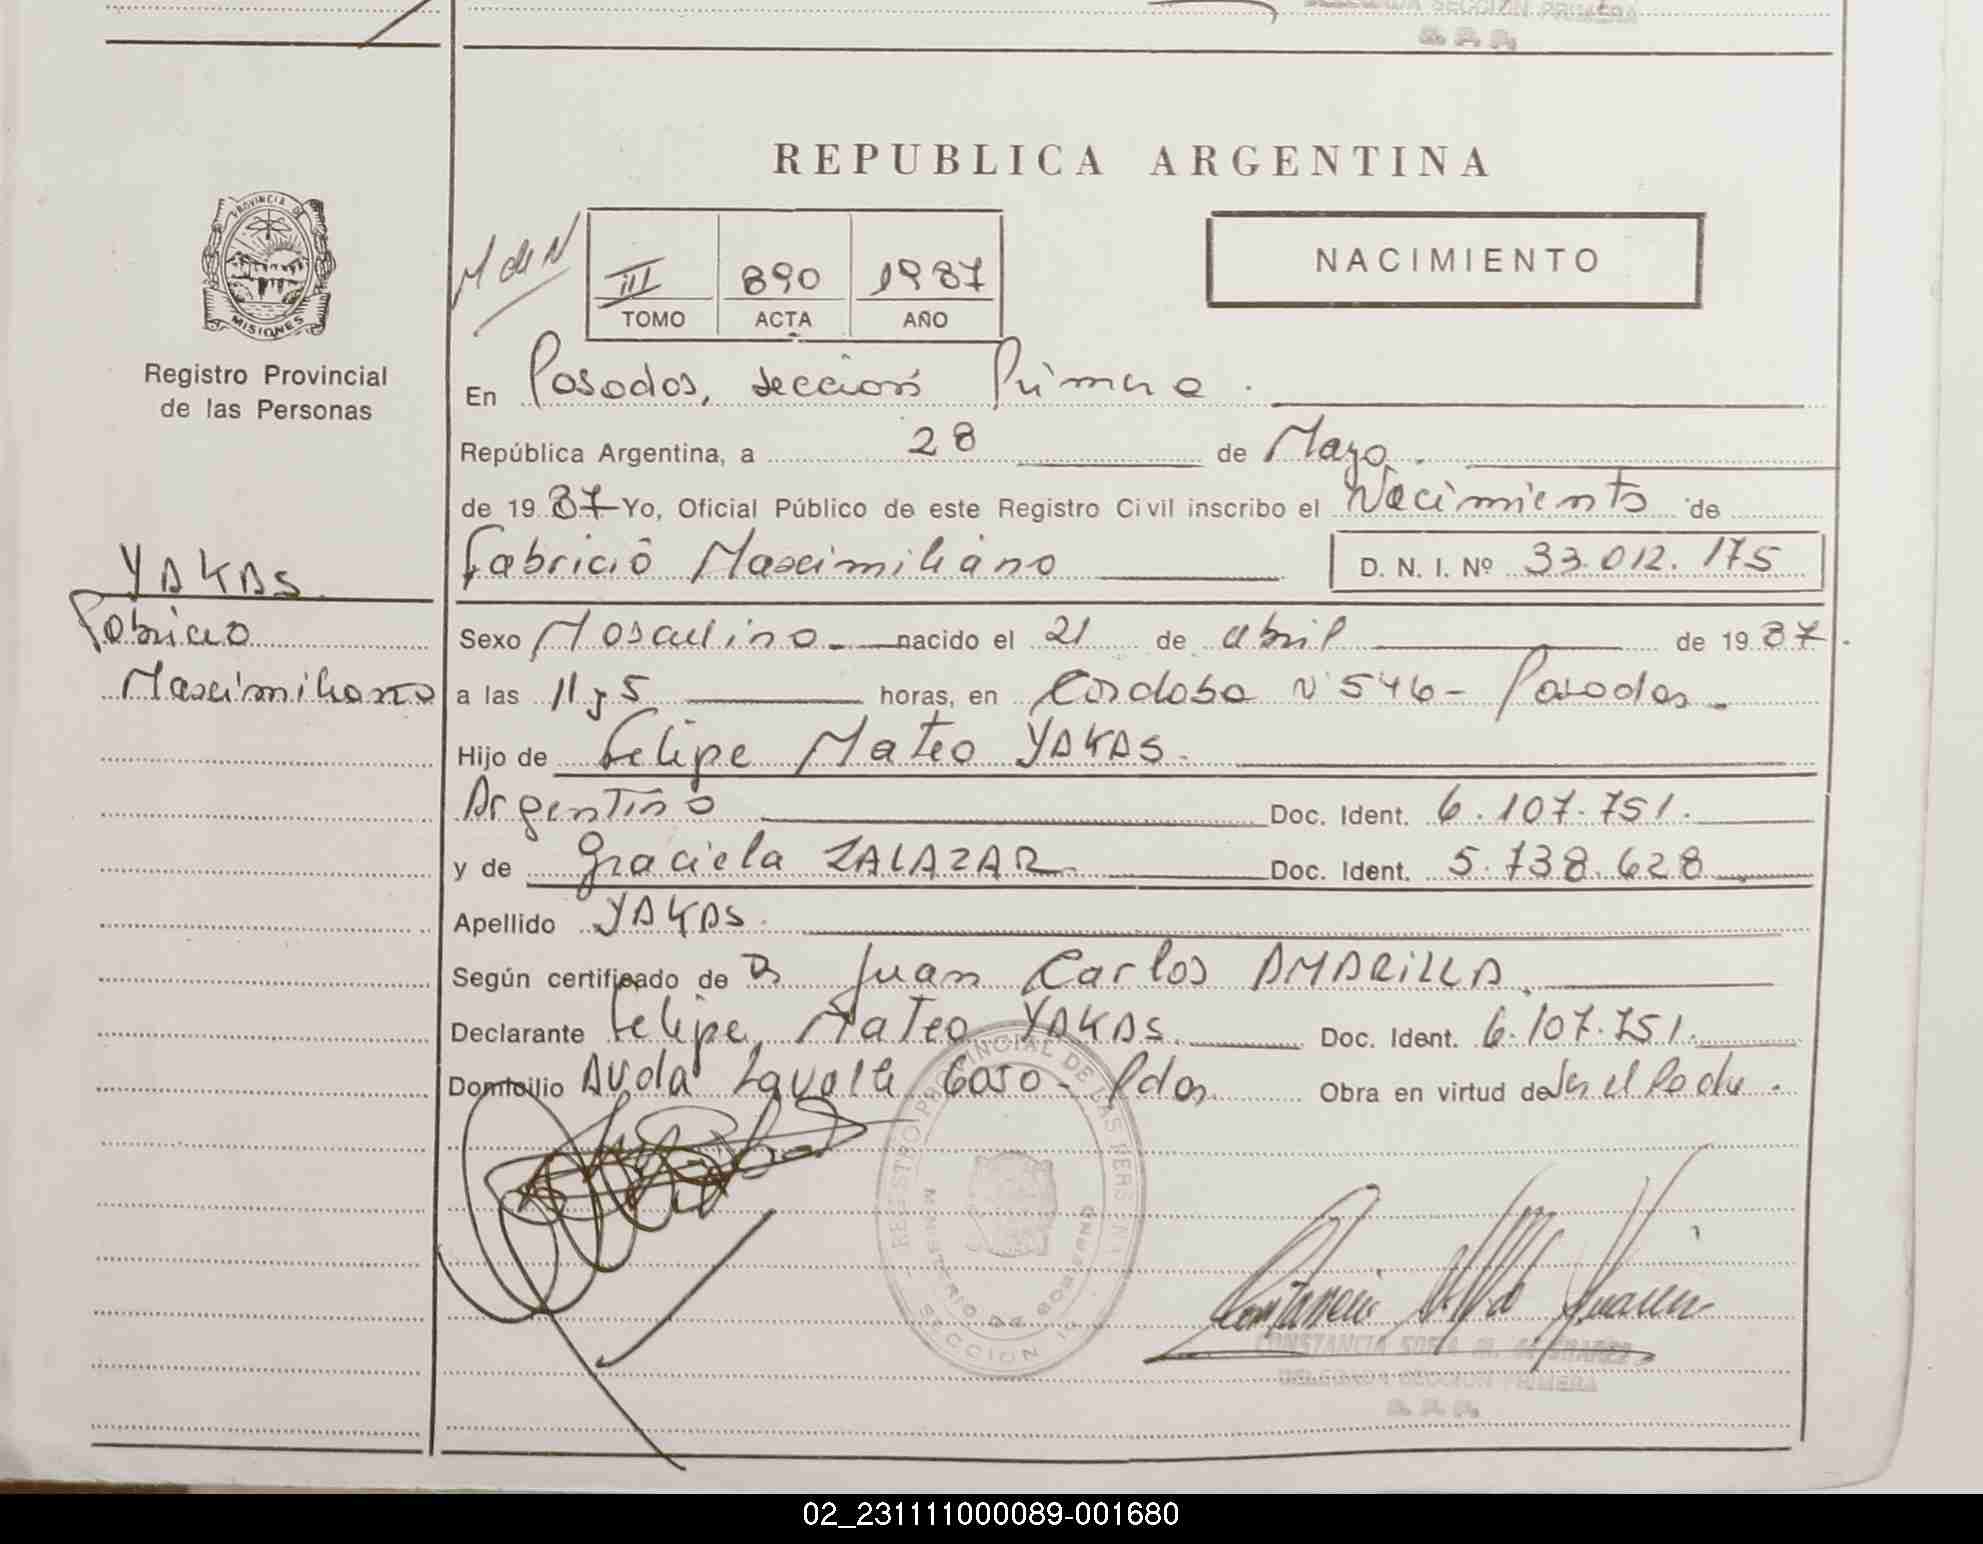 DELEGADA SECCION PRIMERA
R. P. P.
REPUBLICA ARGENTINA
PROVINCIA DE
MISIONES
Registro Provincial
de las Personas
M de N
III 890 1987
TOMO ACTA AÑO
NACIMIENTO
En Posadas, sección Primera.
República Argentina, a 28 de Mayo.
de 1987 Yo, Oficial Público de este Registro Civil inscribo el Nacimiento de
Fabricio Maximiliano D. N. I. Nº 33.012.175
YAKAS
Fabricio
Maximiliano
Sexo Masculino nacido el 21 de abril de 1987.
a las 11 y 5 horas, en Córdoba Nº 546 - Posadas.
Hijo de Felipe Mateo YAKAS.
Argentino Doc. Ident. 6.107.751.
y de Graciela ZALAZAR Doc. Ident. 5.738.628
Apellido YAKAS.
Según certificado de Dr Juan Carlos AMARILLA.
Declarante Felipe Mateo YAKAS. Doc. Ident. 6.107.751.
Domicilio Avda Lavalle 6050 - Pdas. Obra en virtud de Ser el Padre.
REGISTRO PROVINCIAL DE LAS PERSONAS
MINISTERIO DE GOBIERNO
SECCION 1ª
CONSTANCIA SOFIA M. de SUAREZ
DELEGADA SECCION PRIMERA
R. P. P.
02_231111000089-001680